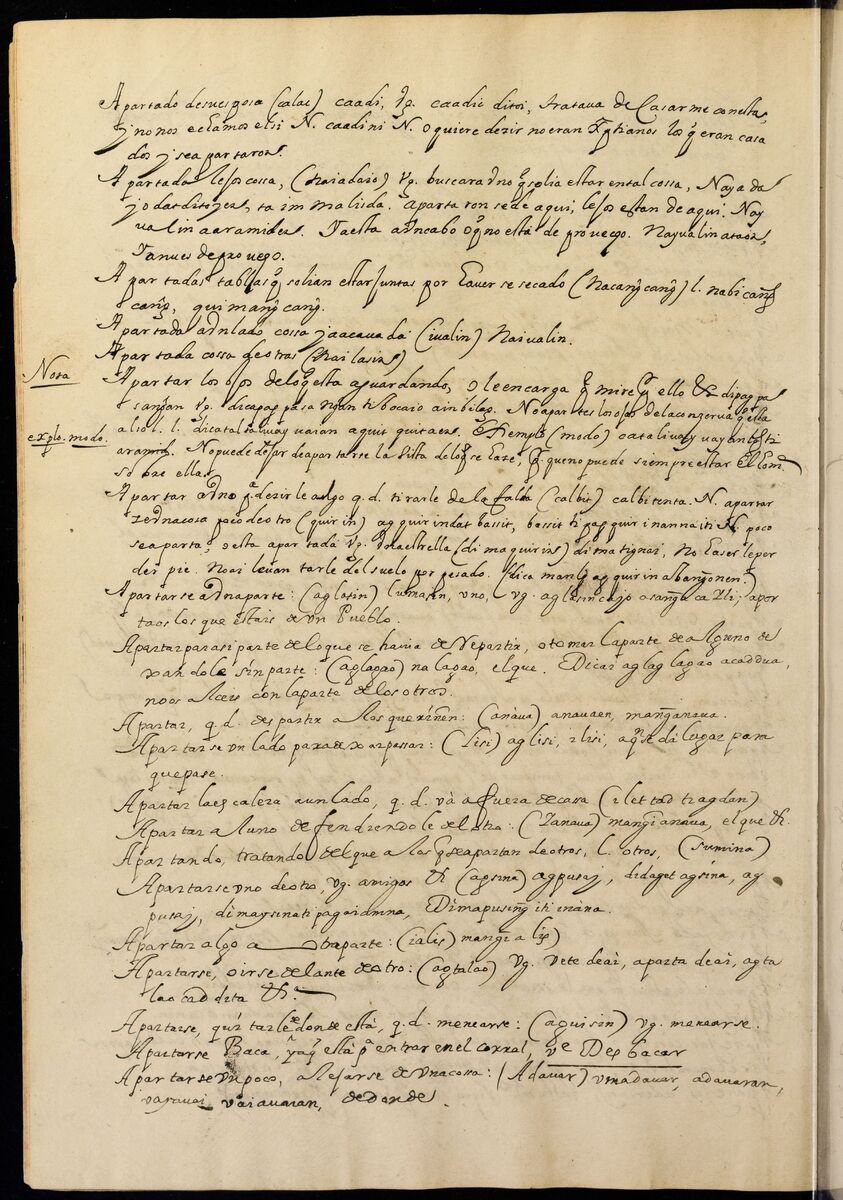 Apartado desu esposa (calac) caadi, vg. caadic ditoi, tratava de Casarme conesta,
y no nos echamos elsi N. caadi ni N. o quiere dezir no eran Xptianos los q̃ eran casa
dos y sea partaron.
Apartada lejos cossa, (Naiadaio) vg. buscara uno q̃ solia estar en tal cossa, Naya da
ta im malisda. aparta ron se de aqui; lejos estan de aqui. Nay
valin a aramides. esta un cabo o q̃ no està de provego. Nayvalin
de provego.
Apartadas tablas q̃ solian estar juntas por haver se secado (Nacang̃cang̃) l. nabicang̃
cang̃, quimang̃cang̃.
Apartada a un lado cossa y aacavada (ivalin) Naivalin.
Apartada cossa de otras (Nailasin)
Nota
Apartar los ojos de lo q̃ esta aguardando, o le encarga q̃ mire q̃ ello &c dipag pa
sang̃an vg. dicapag pasa ng̃an ti bocaio ainbileg. No apartes los ojos dela conzerva q̃ ella
explo. modo.
l. l. dicatalivuay vaian aguit quitaen. Exemplo (modo) catalivuay vay
No puede dejar de apartarse la vista delo q̃ se haze, q̃ que no puede siempre estar el hom
sobre ella.
Apartar a uno pa. dezirle algo q.d. tirarle de la falda (calbit) calbitenta. N. apartar
se una cosa poco de otro (quirin) ag quirin dat bassit, bassit ti pag quir inanna iti N. poco
se aparta, o esta apartada vg. una estrella (di maquirin) di matignai, No haser le per
der pie. No ai levantarle del suelo por pesado. (dica manh̃ ag quirin abang̃onen.)
Apartarse a una parte: (aglasin) lumasin, uno, vg. aglasin caio
taos los que estais de un Pueblo.
Apartar para si parte de lo que se havia de repartir, o tomar la parte de alguno de
xandole sin parte: (aglagao) na lagao, el que. Dicai aglag lagao acaddua,
no os alceis con la parte de los otros.
Apartar, q.d. despartir a los que riñen: (anàva) anavaen, mang̃anava.
Apartarse un lado para dexar passar: (Lisi) aglisi, ilisi, aqñ se da lugar para
que pase.
Apartar la escalera a un lado, q.d. và a fuera de casa (ilet tad ti agdan)
Apartar a uno defendiendole de otro: (Zanava) mang̃ianava, el que &c.
Apartando, tratando del que a los q̃ se apartan de otros, l. otros, (sumina)
Apartarse uno de otro, vg. amigos &c (agsina) agpusay, didaget agsina, ag
pusay, di maysinati pagaiamna, Di mapusing̃ iti inana.
Apartar algo a otra parte: (ialis) mang̃i alis)
Apartarse, o irse de lante de otro: (agtalao) vg. vete de ài, aparta de ài, agta
lao cad dita &c.
Apartarse, quitarle de donde està, q.d. menearse: (aguisin) vg. menearse.
Apartarse Baca, q̃ està pa. entrar en el corral, ve. Desbacar
Apartarse un poco, alejarse de una cossa: (Adavar) umadavar, adavaran,
vaiavaran, de donde.